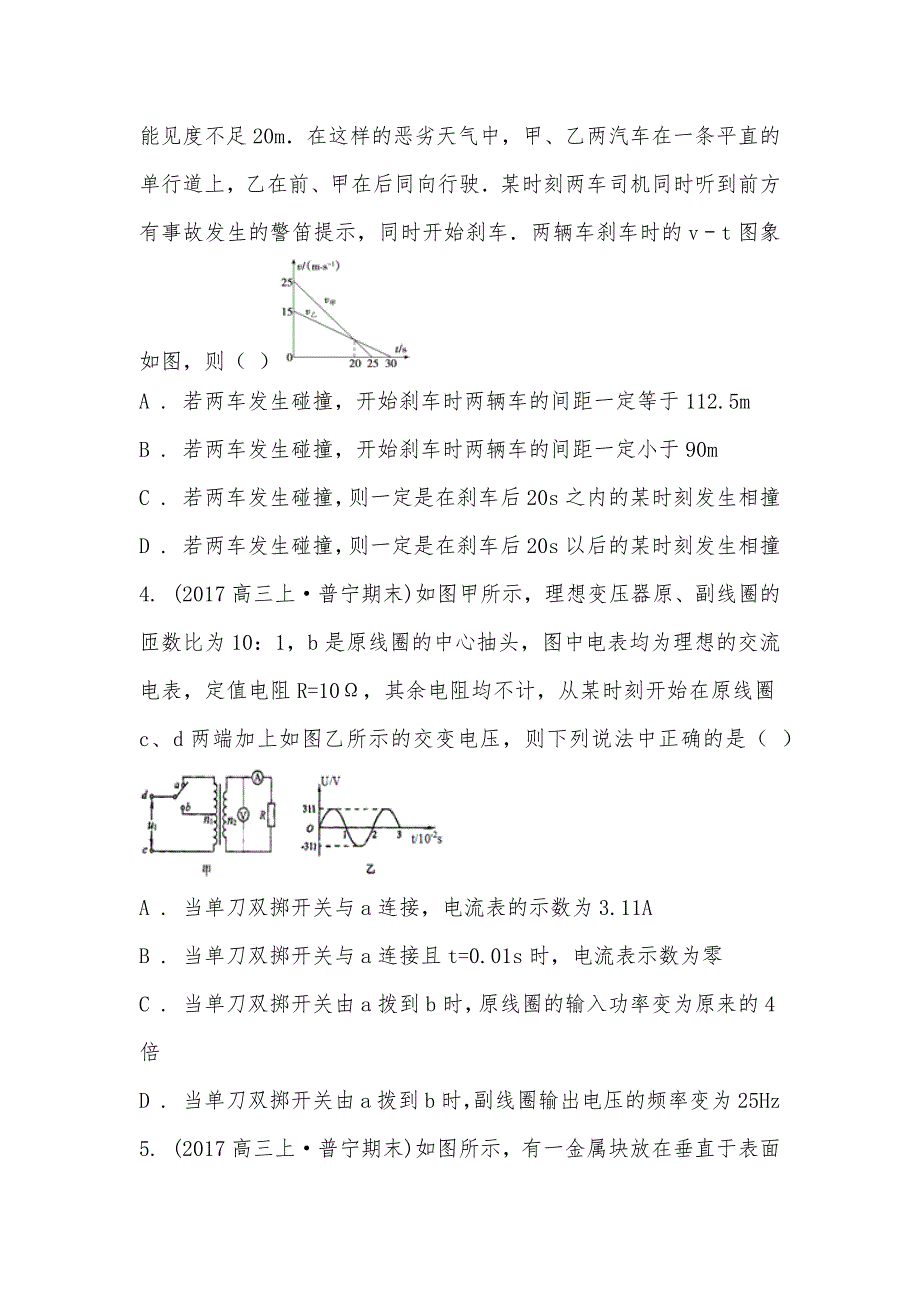 能见度不足20m．在这样的恶劣天气中，甲、乙两汽车在一条平直的
单行道上，乙在前、甲在后同向行驶．某时刻两车司机同时听到前方
有事故发生的警笛提示，同时开始刹车．两辆车刹车时的v﹣t图象
v/(m·s⁻¹)
25
v甲
15
v乙
0
20 25 30
t/s
如图，则（ ）
A ． 若两车发生碰撞，开始刹车时两辆车的间距一定等于112.5m
B ． 若两车发生碰撞，开始刹车时两辆车的间距一定小于90m
C ． 若两车发生碰撞，则一定是在刹车后20s之内的某时刻发生相撞
D ． 若两车发生碰撞，则一定是在刹车后20s以后的某时刻发生相撞
4. (2017高三上·普宁期末)如图甲所示，理想变压器原、副线圈的
匝数比为10：1，b是原线圈的中心抽头，图中电表均为理想的交流
电表，定值电阻R=10Ω，其余电阻均不计，从某时刻开始在原线圈
c、d两端加上如图乙所示的交变电压，则下列说法中正确的是（ ）
d
a
b
u₁
c
n₁
n₂
A
V
R
甲
U/V
311
O
-311
1 2 3
t/10⁻²s
乙
A ． 当单刀双掷开关与a连接，电流表的示数为3.11A
B ． 当单刀双掷开关与a连接且t=0.01s时，电流表示数为零
C ． 当单刀双掷开关由a拨到b时，原线圈的输入功率变为原来的4
倍
D ． 当单刀双掷开关由a拨到b时，副线圈输出电压的频率变为25Hz
5. (2017高三上·普宁期末)如图所示，有一金属块放在垂直于表面